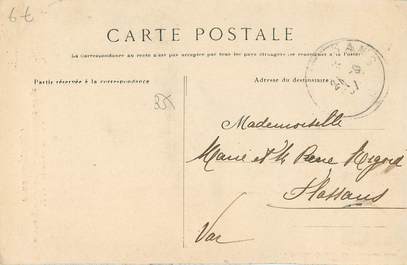 6€
CARTE POSTALE
La Correspondance au recto n'est pas acceptée par tous les pays étrangers (se renseigner à la Poste)
Partie réservée à la correspondance
Adresse du destinataire
Mademoiselle
Marie et
Flassans
Var